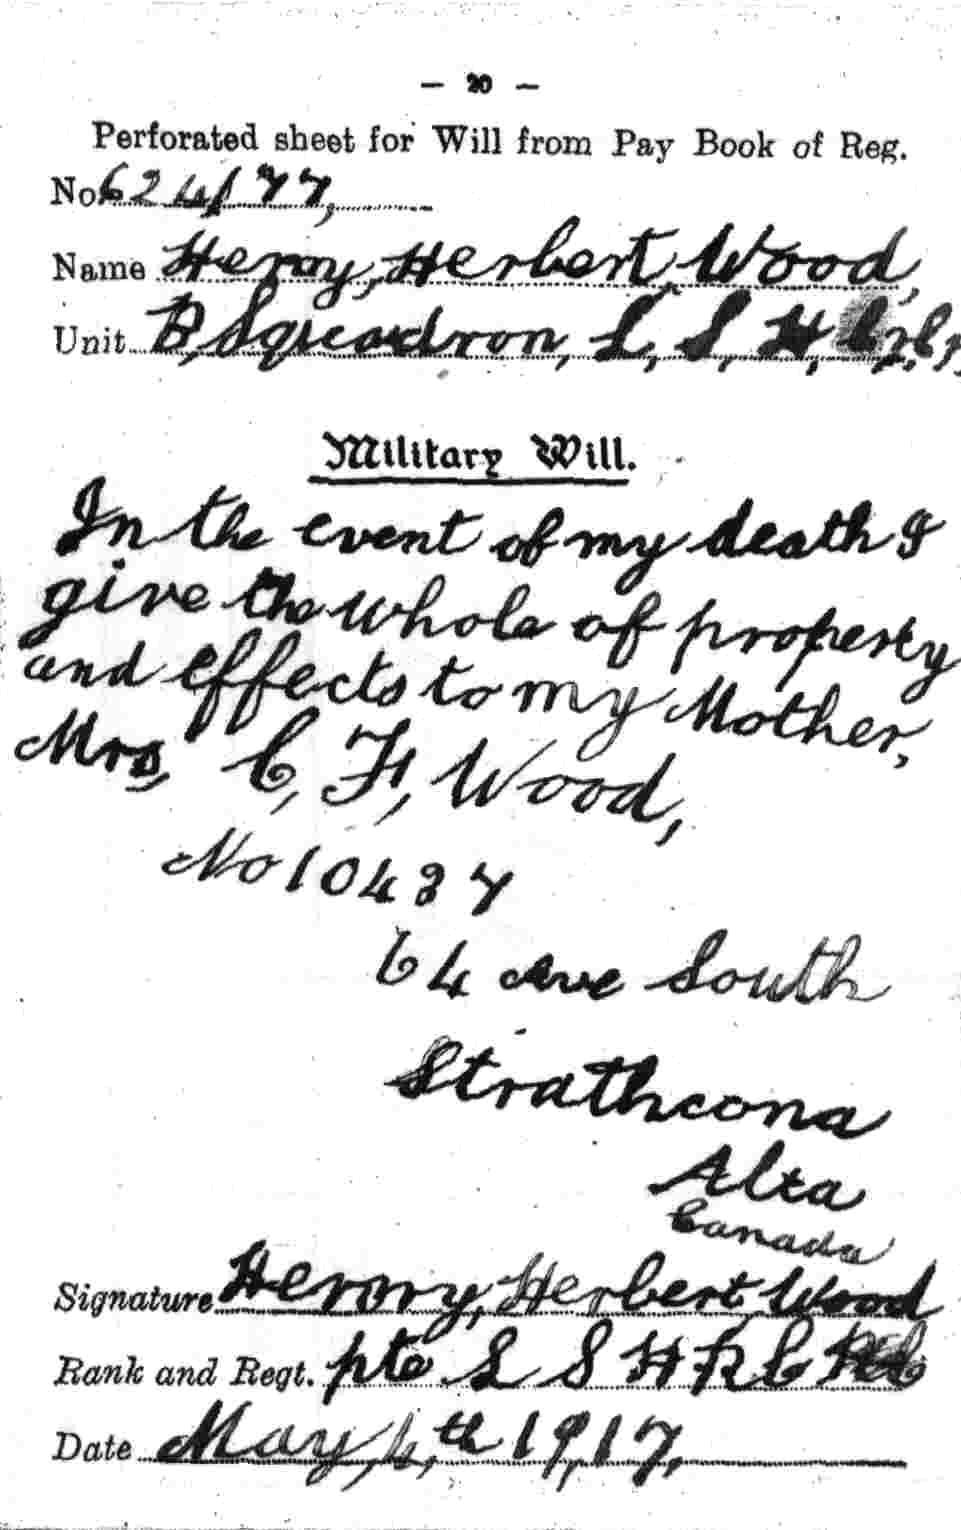 — 20 —
Perforated sheet for Will from Pay Book of Reg.
No 624177,
Name Henry, Herbert, Wood,
Unit B, Squadron, L, S, H,
Military Will.
In the event of my death I
give the whole of property
and effects to my Mother,
Mrs, C, F, Wood,
No 10437
64 Ave South
Strathcona
Alta
Canada
Signature Henry, Herbert, Wood
Rank and Regt. pte L S H R C
Date May, 4, th 19,17,